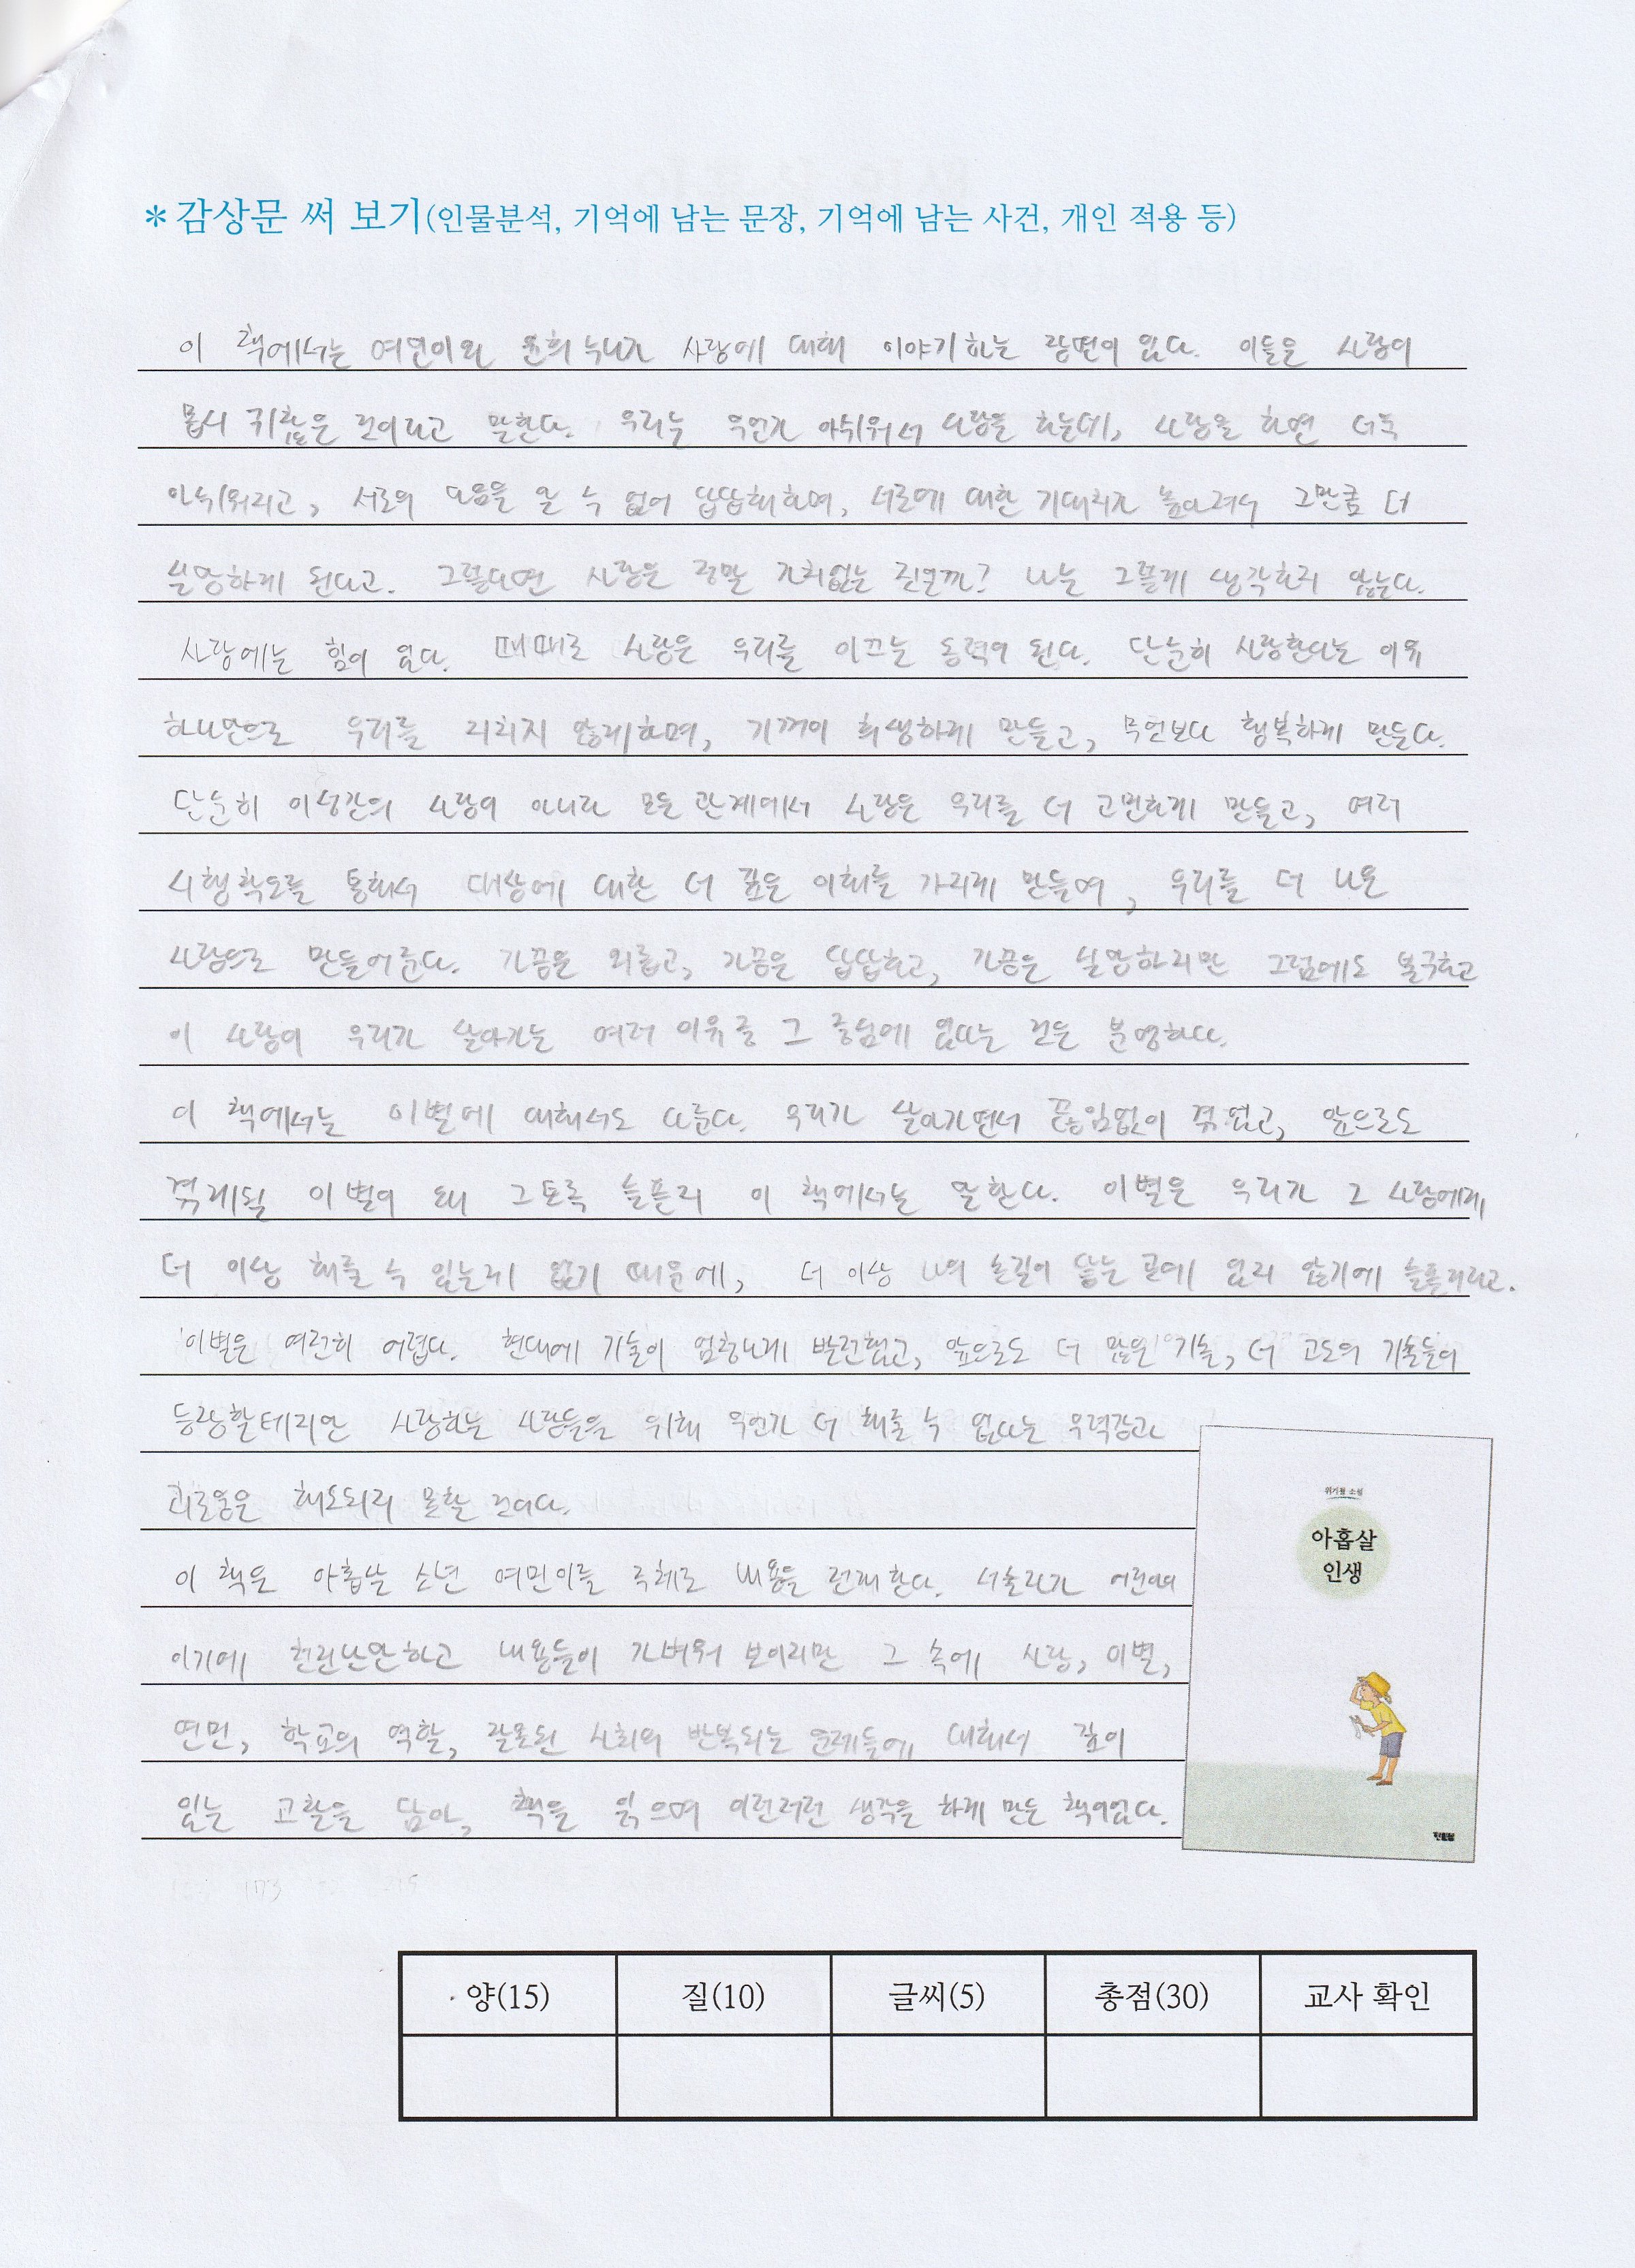 *감상문 써 보기(인물분석, 기억에 남는 문장, 기억에 남는 사건, 개인 적용 등)
이 책에서는 여민이와 윤희 누나가 사랑에 대해 이야기하는 장면이 있다. 이들은 사랑이
몹시 귀찮은 것이라고 말한다. 우리는 무언가 아쉬워서 사랑을 하는데, 사랑을 하면 더욱
아쉬워지고, 서로의 마음을 알 수 없어 답답해하며, 서로에 대한 기대치가 높아져서 그만큼 더
실망하게 된다고. 그렇다면 사랑은 정말 가치없는 것일까? 나는 그렇게 생각하지 않는다.
사랑에는 힘이 있다. 때때로 사랑은 우리를 이끄는 동력이 된다. 단순히 사랑한다는 이유
하나만으로 우리를 지치지 않게하며, 기꺼이 희생하게 만들고, 무언보다 행복하게 만든다.
단순히 이성간의 사랑이 아니라 모든 관계에서 사랑은 우리를 더 고민하게 만들고, 여러
시행착오를 통해서 대상에 대한 더 깊은 이해를 가지게 만들며, 우리를 더 나은
사람으로 만들어준다. 가끔은 외롭고, 가끔은 답답하고, 가끔은 실망하지만 그럼에도 불구하고
이 사랑이 우리가 살아가는 여러 이유 중 그 중심에 있다는 것은 분명하다.
이 책에서는 이별에 대해서도 다룬다. 우리가 살아가면서 끊임없이 겪었고, 앞으로도
겪게될 이별이 왜 그토록 슬픈지 이 책에서는 말한다. 이별은 우리가 그 사람에게
더 이상 해줄 수 있는게 없기 때문에, 더 이상 나의 손길이 닿는 곳에 있지 않기에 슬픈거라고.
이별은 여전히 어렵다. 현대에 기술이 엄청나게 발전했고, 앞으로도 더 많은 기술, 더 고도의 기술들이
등장할테지만 사랑하는 사람들을 위해 무언가 더 해줄 수 없다는 무력감과
괴로움은 해소되지 못할 것이다.
이 책은 아홉살 소년 여민이를 주체로 내용을 전개한다. 서술자가 어린아이
이기에 천진난만하고 내용들이 가벼워 보이지만 그 속에 사랑, 이별,
연민, 학교의 역할, 잘못된 사회의 반복되는 문제들에 대해서 깊이
있는 고찰을 담아, 책을 읽으며 이런저런 생각을 하게 만든 책이었다.
위기철 소설
아홉살
인생
청년사
양(15) 질(10) 글씨(5) 총점(30) 교사 확인